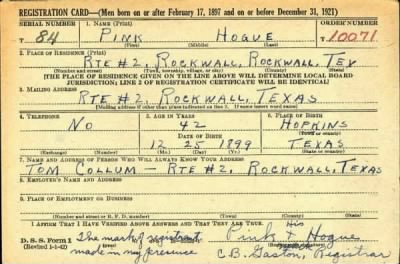 REGISTRATION CARD—(Men born on or after February 17, 1897 and on or before December 31, 1921)
SERIAL NUMBER 1. NAME (Print) ORDER NUMBER
T 84 PINK HOGUE 10071
(First) (Middle) (Last)
2. PLACE OF RESIDENCE (Print)
RTE #2, ROCKWALL, ROCKWALL, TEX
(Number and street) (Town, township, village, or city) (County) (State)
[THE PLACE OF RESIDENCE GIVEN ON THE LINE ABOVE WILL DETERMINE LOCAL BOARD
JURISDICTION; LINE 2 OF REGISTRATION CERTIFICATE WILL BE IDENTICAL]
3. MAILING ADDRESS
RTE #2, ROCKWALL, TEXAS
[Mailing address if other than place indicated on line 2. If same insert word same]
4. TELEPHONE 5. AGE IN YEARS 6. PLACE OF BIRTH
NO 42 HOPKINS
DATE OF BIRTH (Town or county)
12 25 1899 TEXAS
(Exchange) (Number) (Mo.) (Day) (Yr.) (State or country)
7. NAME AND ADDRESS OF PERSON WHO WILL ALWAYS KNOW YOUR ADDRESS
TOM COLLUM - RTE #2, ROCKWALL, TEXAS
8. EMPLOYER'S NAME AND ADDRESS
9. PLACE OF EMPLOYMENT OR BUSINESS
(Number and street or R. F. D. number) (Town) (County) (State)
I AFFIRM THAT I HAVE VERIFIED ABOVE ANSWERS AND THAT THEY ARE TRUE. His
D. S. S. Form 1 The mark of registrant Pink X Hogue
(Revised 1-1-42) made in my presence C.B. Gaston, Registrar